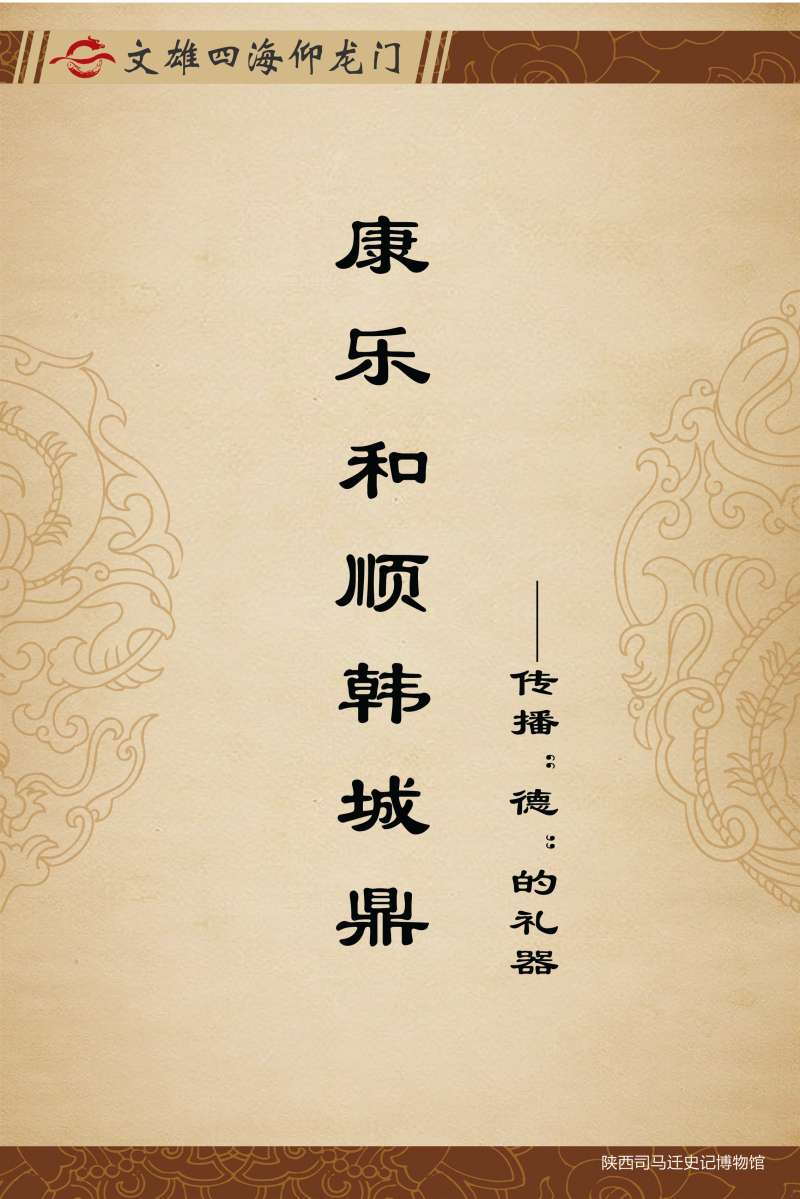 文雄四海仰龙门
康乐和顺韩城鼎
——传播“德”的礼器
陕西司马迁史记博物馆